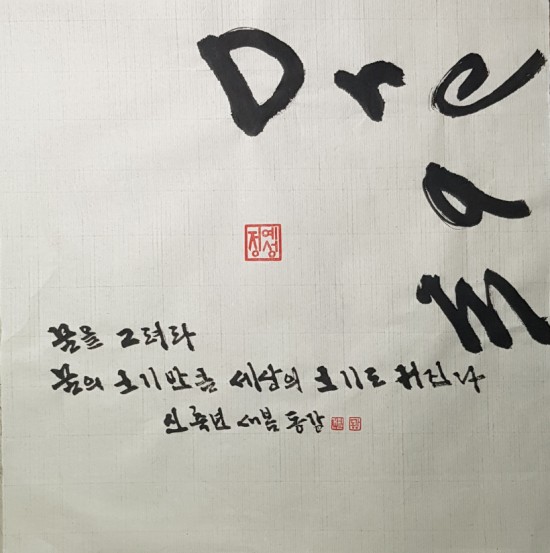 Dream
정예성
꿈을 그려라
꿈의 크기만큼 세상의 크기도 커진다
신축년 새봄 동감